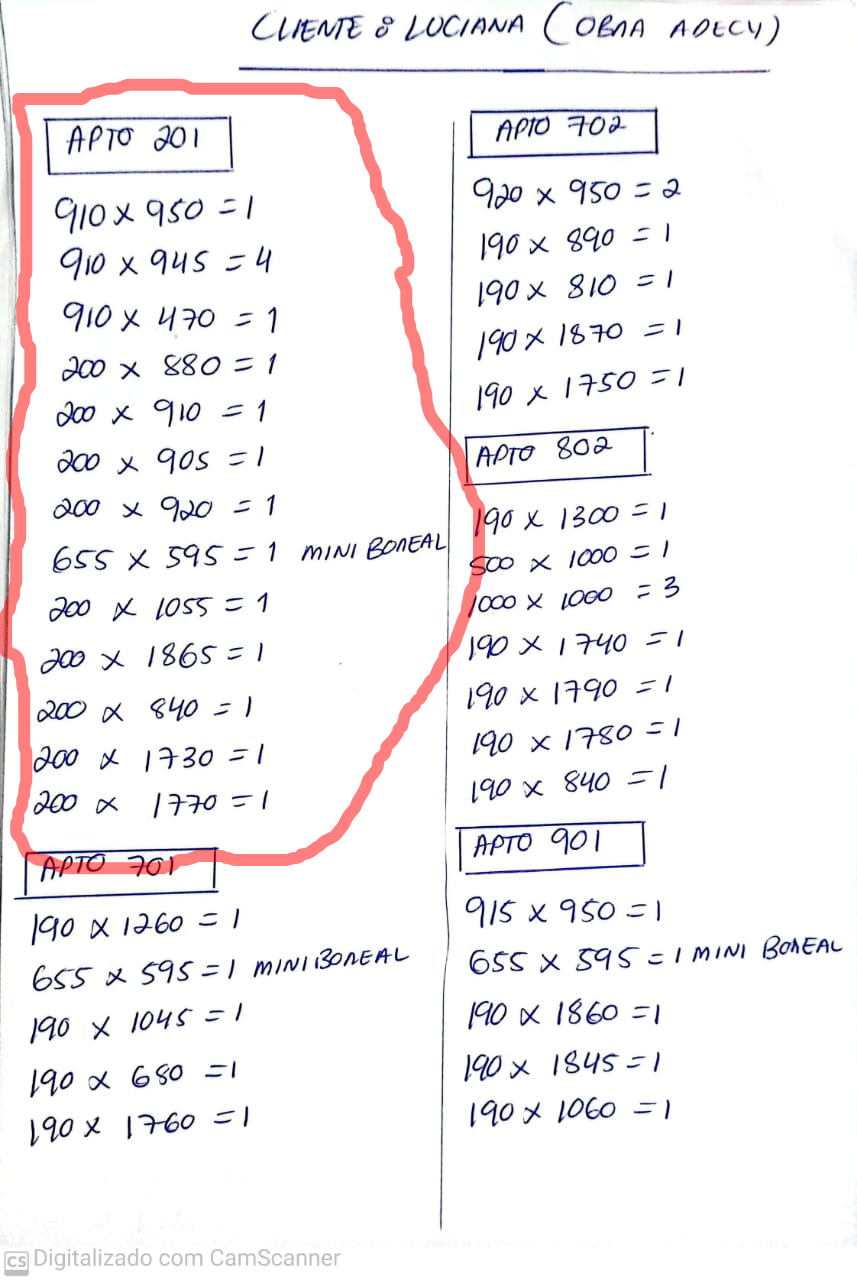 CLIENTE : LUCIANA (OBRA ADECY)
APTO 201
910 x 950 = 1
910 x 945 = 4
910 x 470 = 1
200 x 880 = 1
200 x 910 = 1
200 x 905 = 1
200 x 920 = 1
655 x 595 = 1 MINI BOREAL
200 x 1055 = 1
200 x 1865 = 1
200 x 840 = 1
200 x 1730 = 1
200 x 1770 = 1
APTO 701
190 x 1260 = 1
655 x 595 = 1 MINI BOREAL
190 x 1045 = 1
190 x 680 = 1
190 x 1760 = 1
APTO 702
920 x 950 = 2
190 x 890 = 1
190 x 810 = 1
190 x 1870 = 1
190 x 1750 = 1
APTO 802
190 x 1300 = 1
500 x 1000 = 1
1000 x 1000 = 3
190 x 1740 = 1
190 x 1790 = 1
190 x 1780 = 1
190 x 840 = 1
APTO 901
915 x 950 = 1
655 x 595 = 1 MINI BOREAL
190 x 1860 = 1
190 x 1845 = 1
190 x 1060 = 1
CS Digitalizado com CamScanner